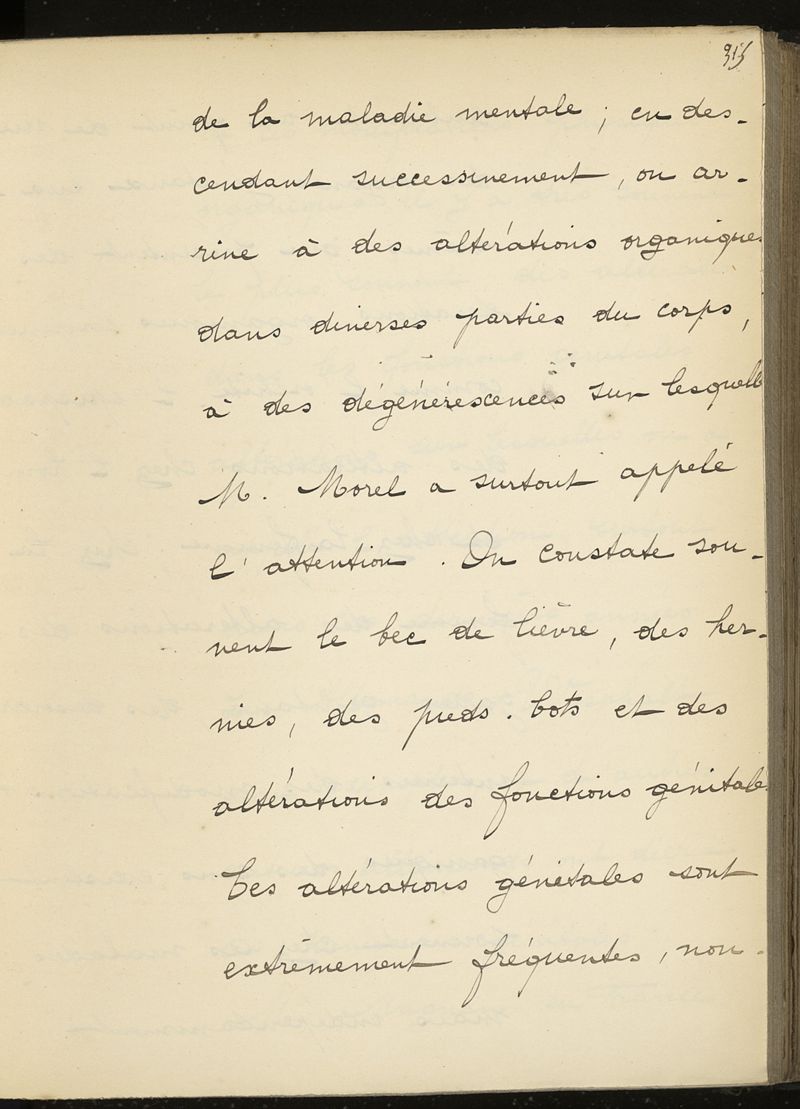 315
de la maladie mentale ; en des-
cendant successivement, on ar-
rive à des altérations organiques
dans diverses parties du corps,
à des dégénérescences sur lesquell
M. Morel a surtout appelé
l'attention. On constate sou-
vent le bec de lièvre, des her-
nies, des pieds-bots et des
altérations des fonctions génitales
Ces altérations génitales sont
extrêmement fréquentes, non-